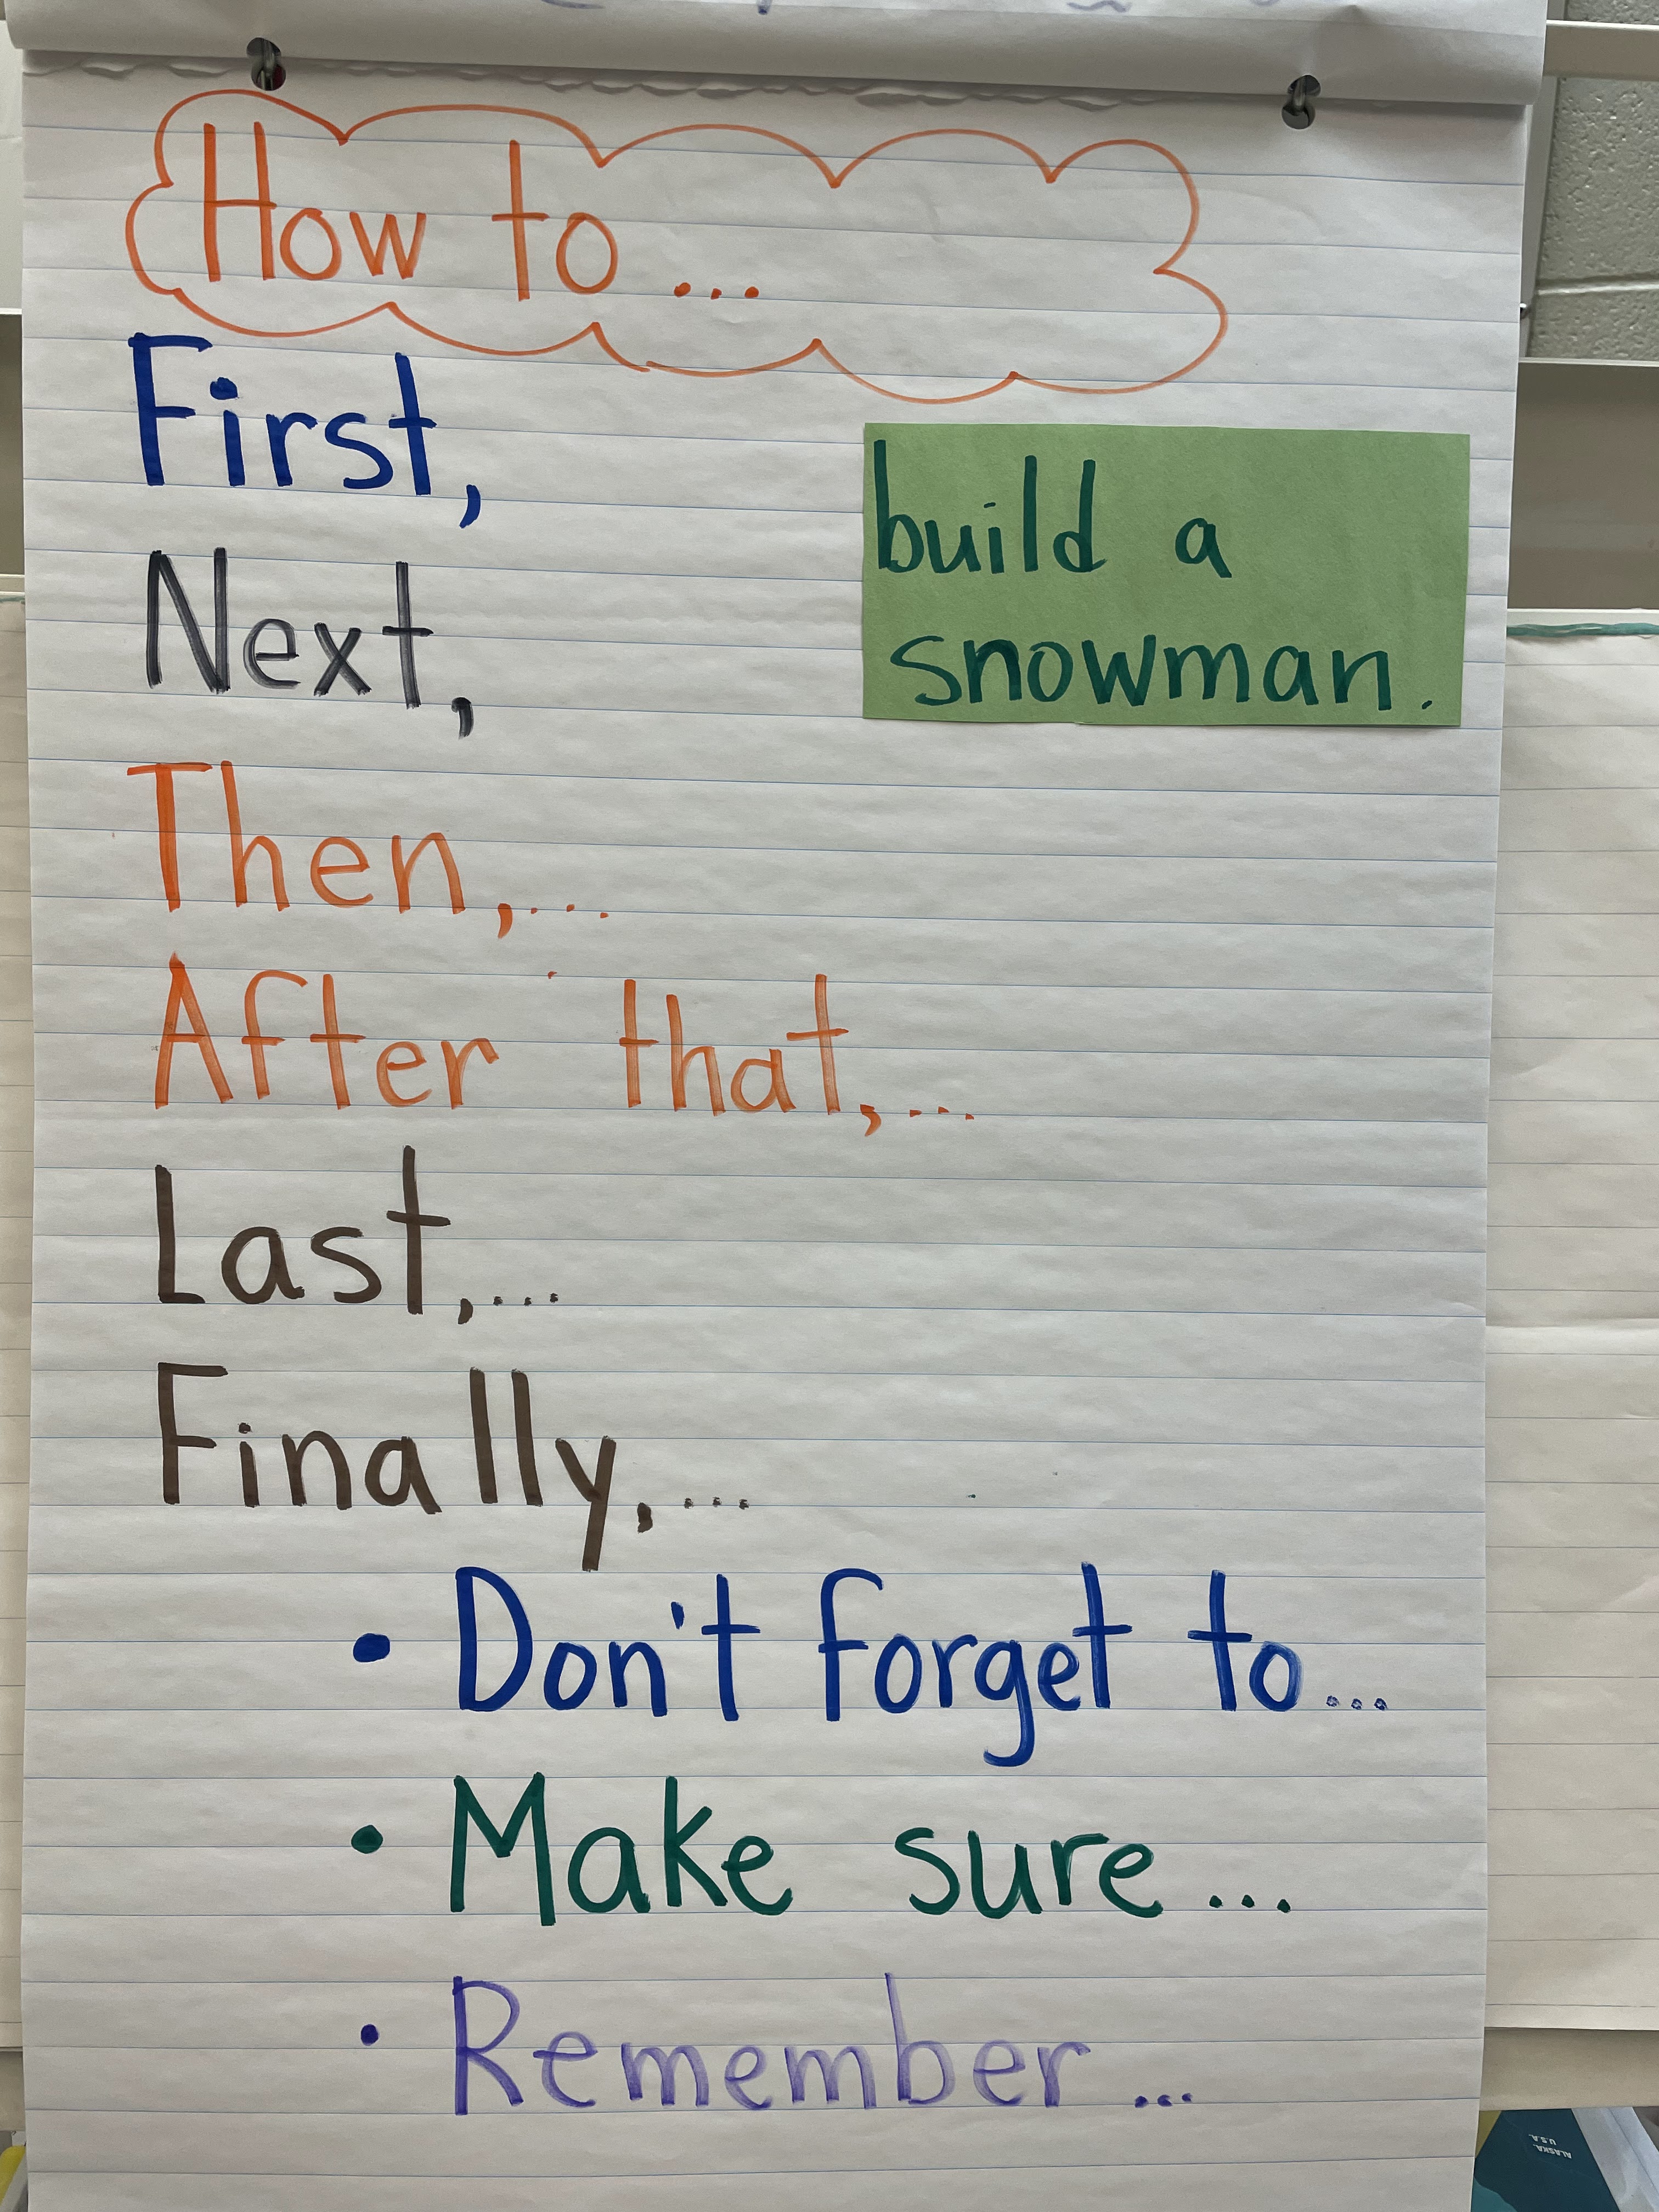 How to ...
First,
build a
snowman.
Next,
Then,...
After that,...
Last,...
Finally,...
• Don't forget to...
• Make sure...
• Remember...
ALASKA,
U.S.A.